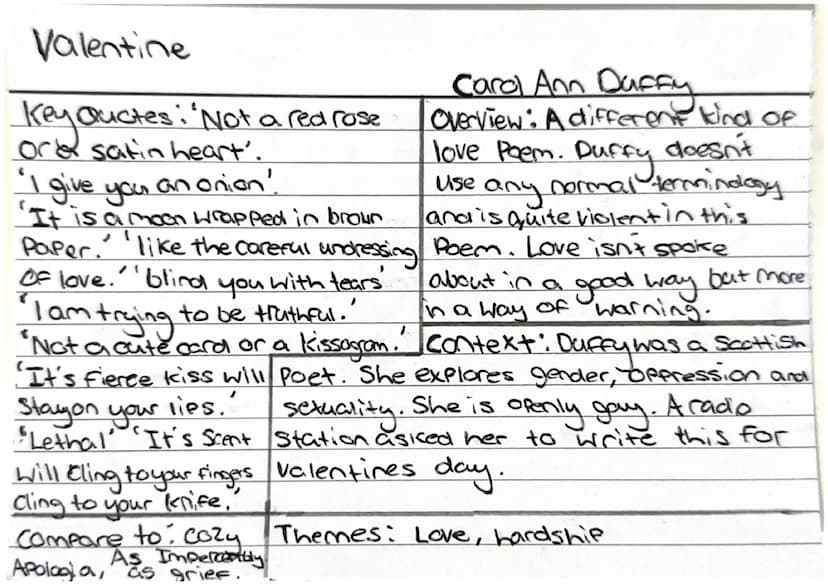 Valentine
Carol Ann Duffy
Key Quotes: 'Not a red rose
or a satin heart'.
'I give you an onion'.
'It is a moon wrapped in brown
Paper.' 'like the careful undressing
of love.' 'blind you with tears'
'I am trying to be truthful.'
'Not a cute card or a kissogram.'
'It's fierce kiss will
stay on your lips.'
'Lethal' 'It's scent
will cling to your fingers
cling to your knife.'
Compare to: Cozy
Apologia, As Imperceptibly
as grief.
Overview: A different kind of
love Poem. Duffy doesn't
use any normal terminology
and is quite violent in this
Poem. Love isn't spoke
about in a good way but more
in a way of warning.
Context: Duffy was a Scottish
Poet. She explores gender, oppression and
sexuality. She is openly gay. A radio
station asked her to write this for
Valentines day.
Themes: Love, hardship